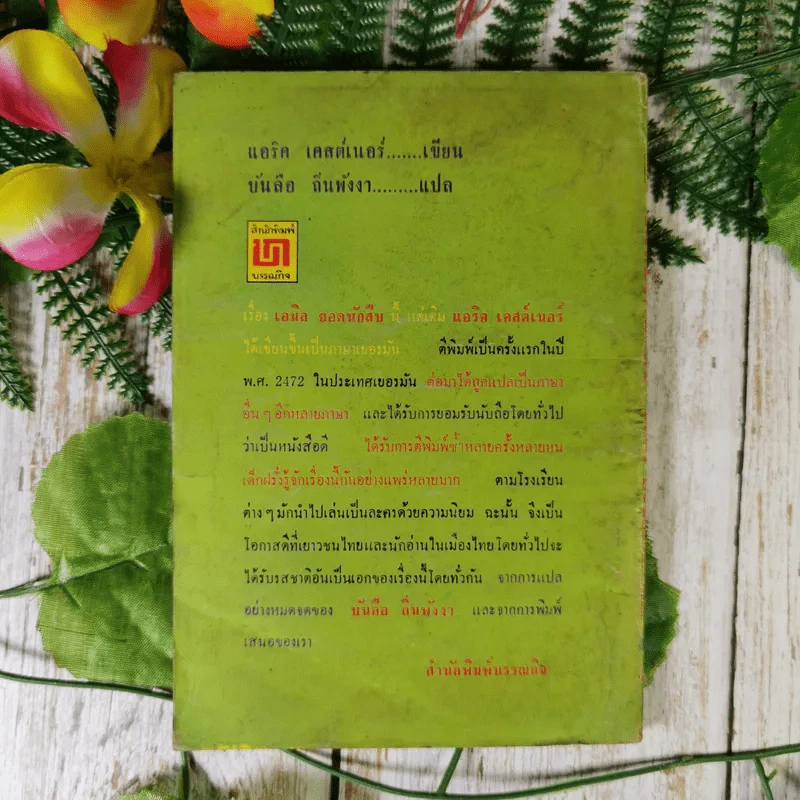 แอริค เคสต์เนอร์.......เขียน
บันลือ ถิ่นพังงา.........แปล
สำนักพิมพ์
บรรณกิจ
เรื่อง เอมิล ยอดนักสืบ นี้ แต่เดิม แอริค เคสต์เนอร์
ได้เขียนขึ้นเป็นภาษาเยอรมัน ตีพิมพ์เป็นครั้งแรกในปี
พ.ศ. 2472 ในประเทศเยอรมัน ต่อมาได้ถูกแปลเป็นภาษา
อื่น ๆ อีกหลายภาษา และได้รับการยอมรับนับถือโดยทั่วไป
ว่าเป็นหนังสือดี ได้รับการตีพิมพ์ซ้ำหลายครั้งหลายหน
เด็กฝรั่งรู้จักเรื่องนี้กันอย่างแพร่หลายมาก ตามโรงเรียน
ต่าง ๆ มักนำไปเล่นเป็นละครด้วยความนิยม ฉะนั้น จึงเป็น
โอกาสดีที่เยาวชนไทยและนักอ่านในเมืองไทยโดยทั่วไปจะ
ได้รับรสชาติอันเป็นเอกของเรื่องนี้โดยทั่วกัน จากการแปล
อย่างหมดจดของ บันลือ ถิ่นพังงา และจากการพิมพ์
เสนอของเรา
สำนักพิมพ์บรรณกิจ